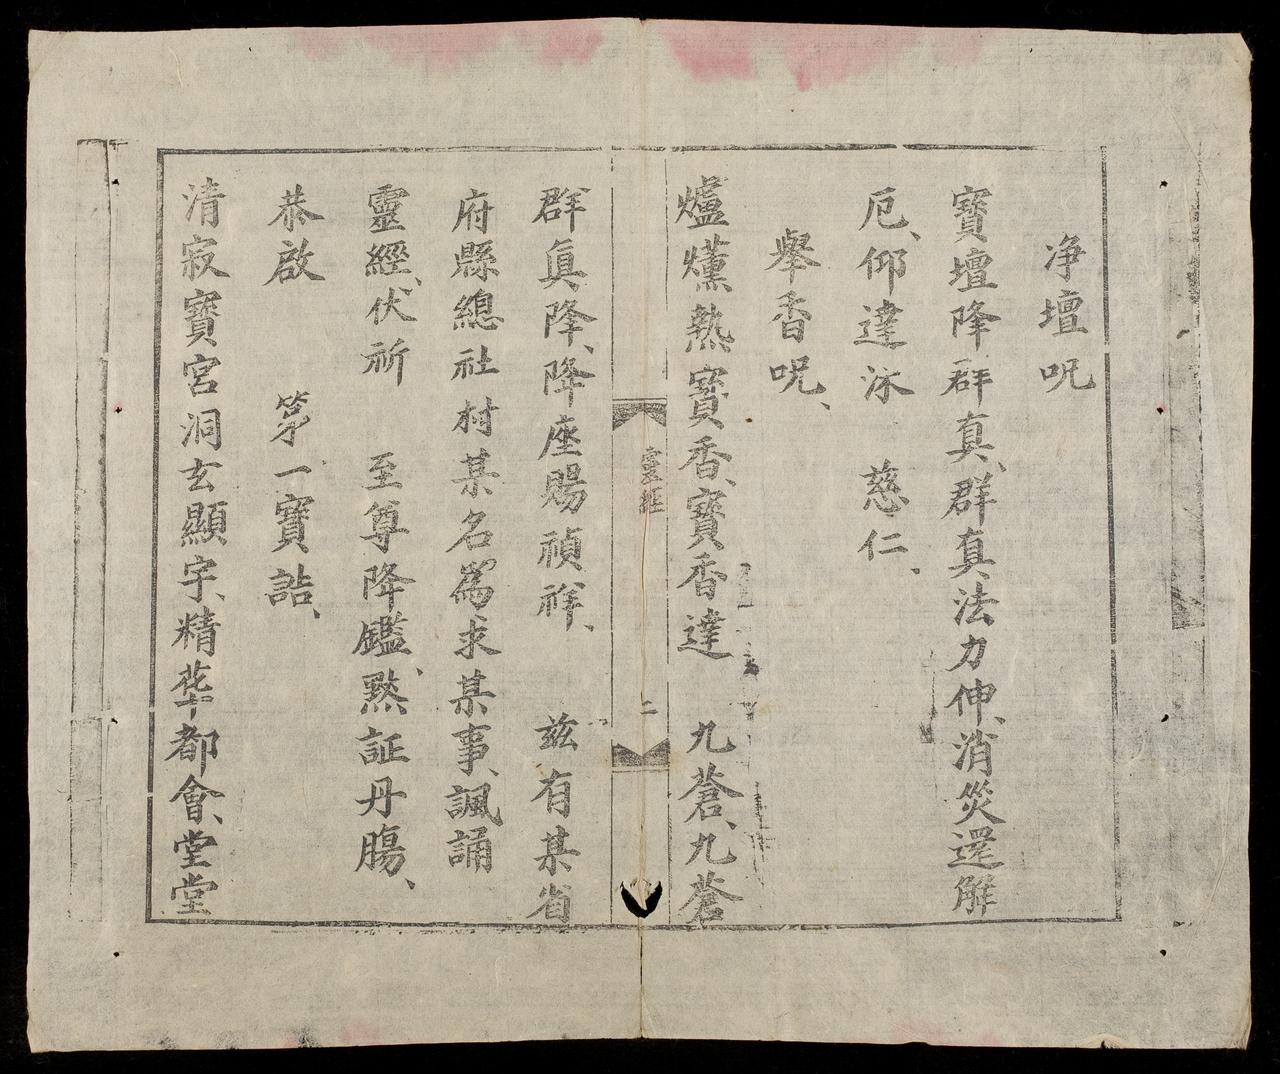 净壇呪
寳壇降群真、群真法力伸、消災還解
厄、仰達沐　慈仁、
舉香呪、
爐爐熱寳香、寳香達　九蒼、九蒼
靈經
二
群真降、降座賜禎祥、　兹有某省
府縣總社村某名爲求某事、諷誦
靈經、伏祈　至尊降鑑、默証丹膓、
恭啟　第一寳誥、
清寂寳宮洞玄顯字、精華都會、堂堂